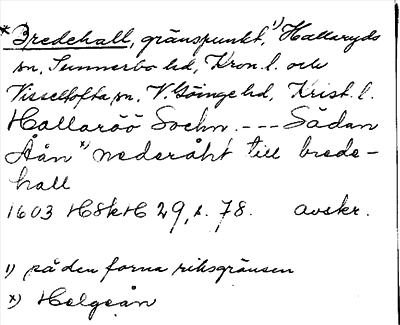 * Bredehall, gränspunkt,¹) Hallaryds
sn, Sunnerbo hd, Kron. l. och
Visseltofta sn, V. Göinge hd, Krist. l.
Hallaröö Sochn. --- Sådan
Åån ˣ) nederåht till brede-
hall
1603 HSkH 29, s. 78. avskr.
1) på den forna riksgränsen
x) Helgeån